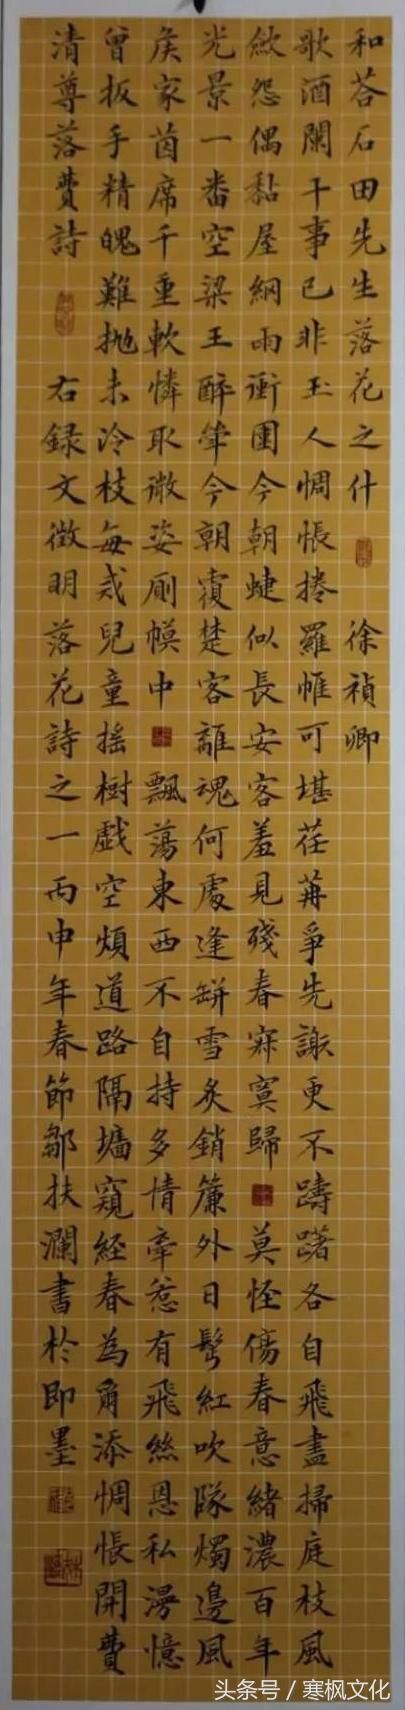 和荅石田先生落花之什 徐禎卿
歌酒闌干事已非玉人惆悵捲羅帷可堪荏苒爭先謝更不躊躇各自飛盡掃庭枝風
斂怨偶黏屋網雨衝圍今朝蜨似長安客羞見殘春寂寞歸 莫怪傷春意緒濃百年
光景一番空梁王醉輦今朝賓楚客離魂何處逢缾雪炙銷簾外日髩紅吹隊燭邊風
矦家茵席千重軟憐取微姿廁幙中 飄蕩東西不自持多情牽惹有飛絲恩私漫憶
曾扳手精魄難拋未冷枝每戒兒童搖樹戲空煩道路隔墻窺經春為爾添惆悵開費
清尊落費詩 右錄文徵明落花詩之一丙申年春節鄒扶瀾書於即墨
头条号 / 寒枫文化